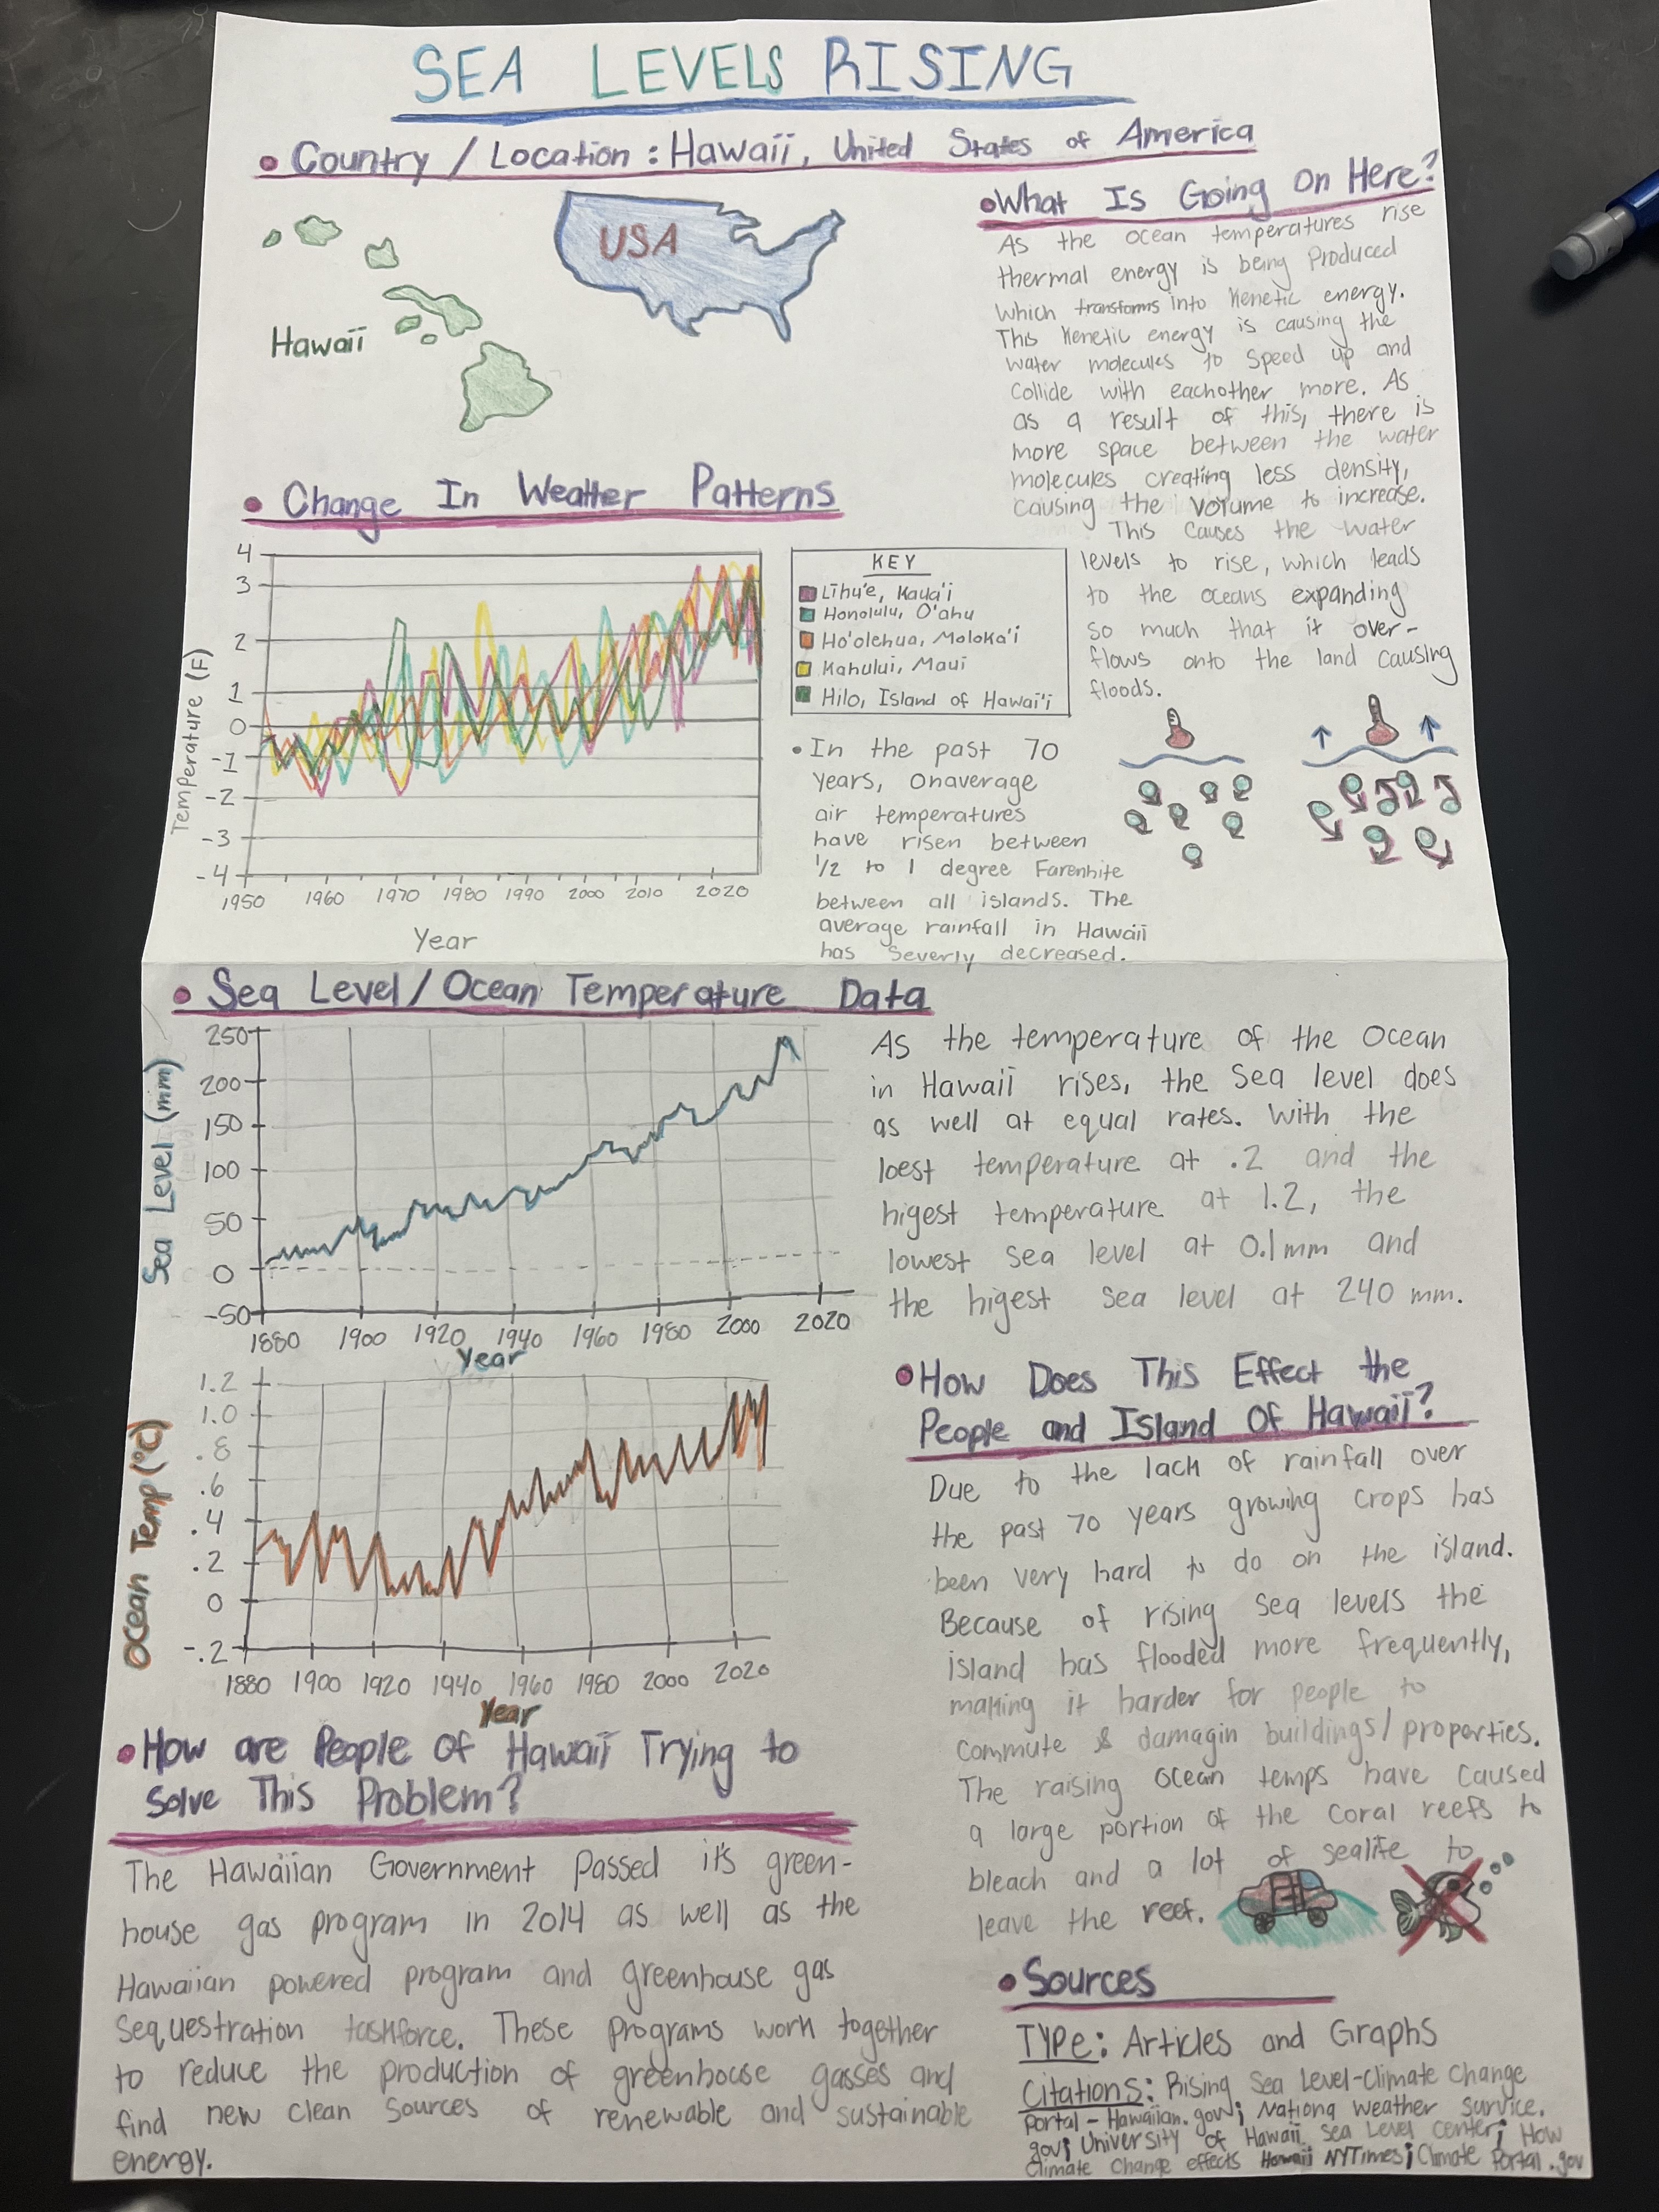 SEA LEVELS RISING
• Country / Location : Hawaii, United States of America
USA
Hawaii
• What Is Going On Here?
As the ocean temperatures rise
thermal energy is being Produced
which transforms into Kenetic energy.
This Kenetic energy is causing the
water molecules to speed up and
collide with eachother more. As
as a result of this, there is
more space between the water
molecules creating less density,
causing the volume to increase.
This causes the water
levels to rise, which leads
to the oceans expanding
so much that it over-
flows onto the land causing
floods.
• Change In Weatter Patterns
Temperature (F)
4
3
2
1
0
-1
-2
-3
-4
1950 1960 1970 1980 1990 2000 2010 2020
Year
KEY
Līhu'e, Kaua'i
Honolulu, O'ahu
Ho'olehua, Moloka'i
Kahului, Maui
Hilo, Island of Hawai'i
• In the past 70
years, onaverage
air temperatures
have risen between
1/2 to 1 degree Farenhite
between all islands. The
average rainfall in Hawaii
has severly decreased.
• Sea Level/Ocean Temperature Data
Sea Level (mm)
250
200
150
100
50
0
-50
1880 1900 1920 1940 1960 1980 2000 2020
Year
Ocean Temp (°C)
1.2
1.0
.8
.6
.4
.2
0
-.2
1880 1900 1920 1940 1960 1980 2000 2020
Year
As the temperature of the Ocean
in Hawaii rises, the Sea level does
as well at equal rates. With the
loest temperature at .2 and the
higest temperature at 1.2, the
lowest sea level at 0.1mm and
the higest sea level at 240 mm.
• How Does This Effect the
People and Island Of Hawaii?
Due to the lack of rainfall over
the past 70 years growing crops has
been very hard to do on the island.
Because of rising sea levels the
island has flooded more frequently,
making it harder for people to
commute & damagin buildings/properties.
The raising ocean temps have caused
a large portion of the coral reefs to
bleach and a lot of sealife to
leave the reef.
• How are People Of Hawaii Trying to
Solve This Problem?
The Hawaiian Government Passed it's green-
house gas program in 2014 as well as the
Hawaiian powered program and greenhouse gas
sequestration taskforce. These programs work together
to reduce the production of greenhouse gasses and
find new clean sources of renewable and sustainable
energy.
• Sources
TYPE: Articles and Graphs
Citations: Rising Sea Level-Climate Change
Portal - Hawaiian.gov; Nationa Weather survice.
gov; University of Hawaii Sea Level Center; How
Climate Change effects Hawaii NYTimes; Climate Portal.gov